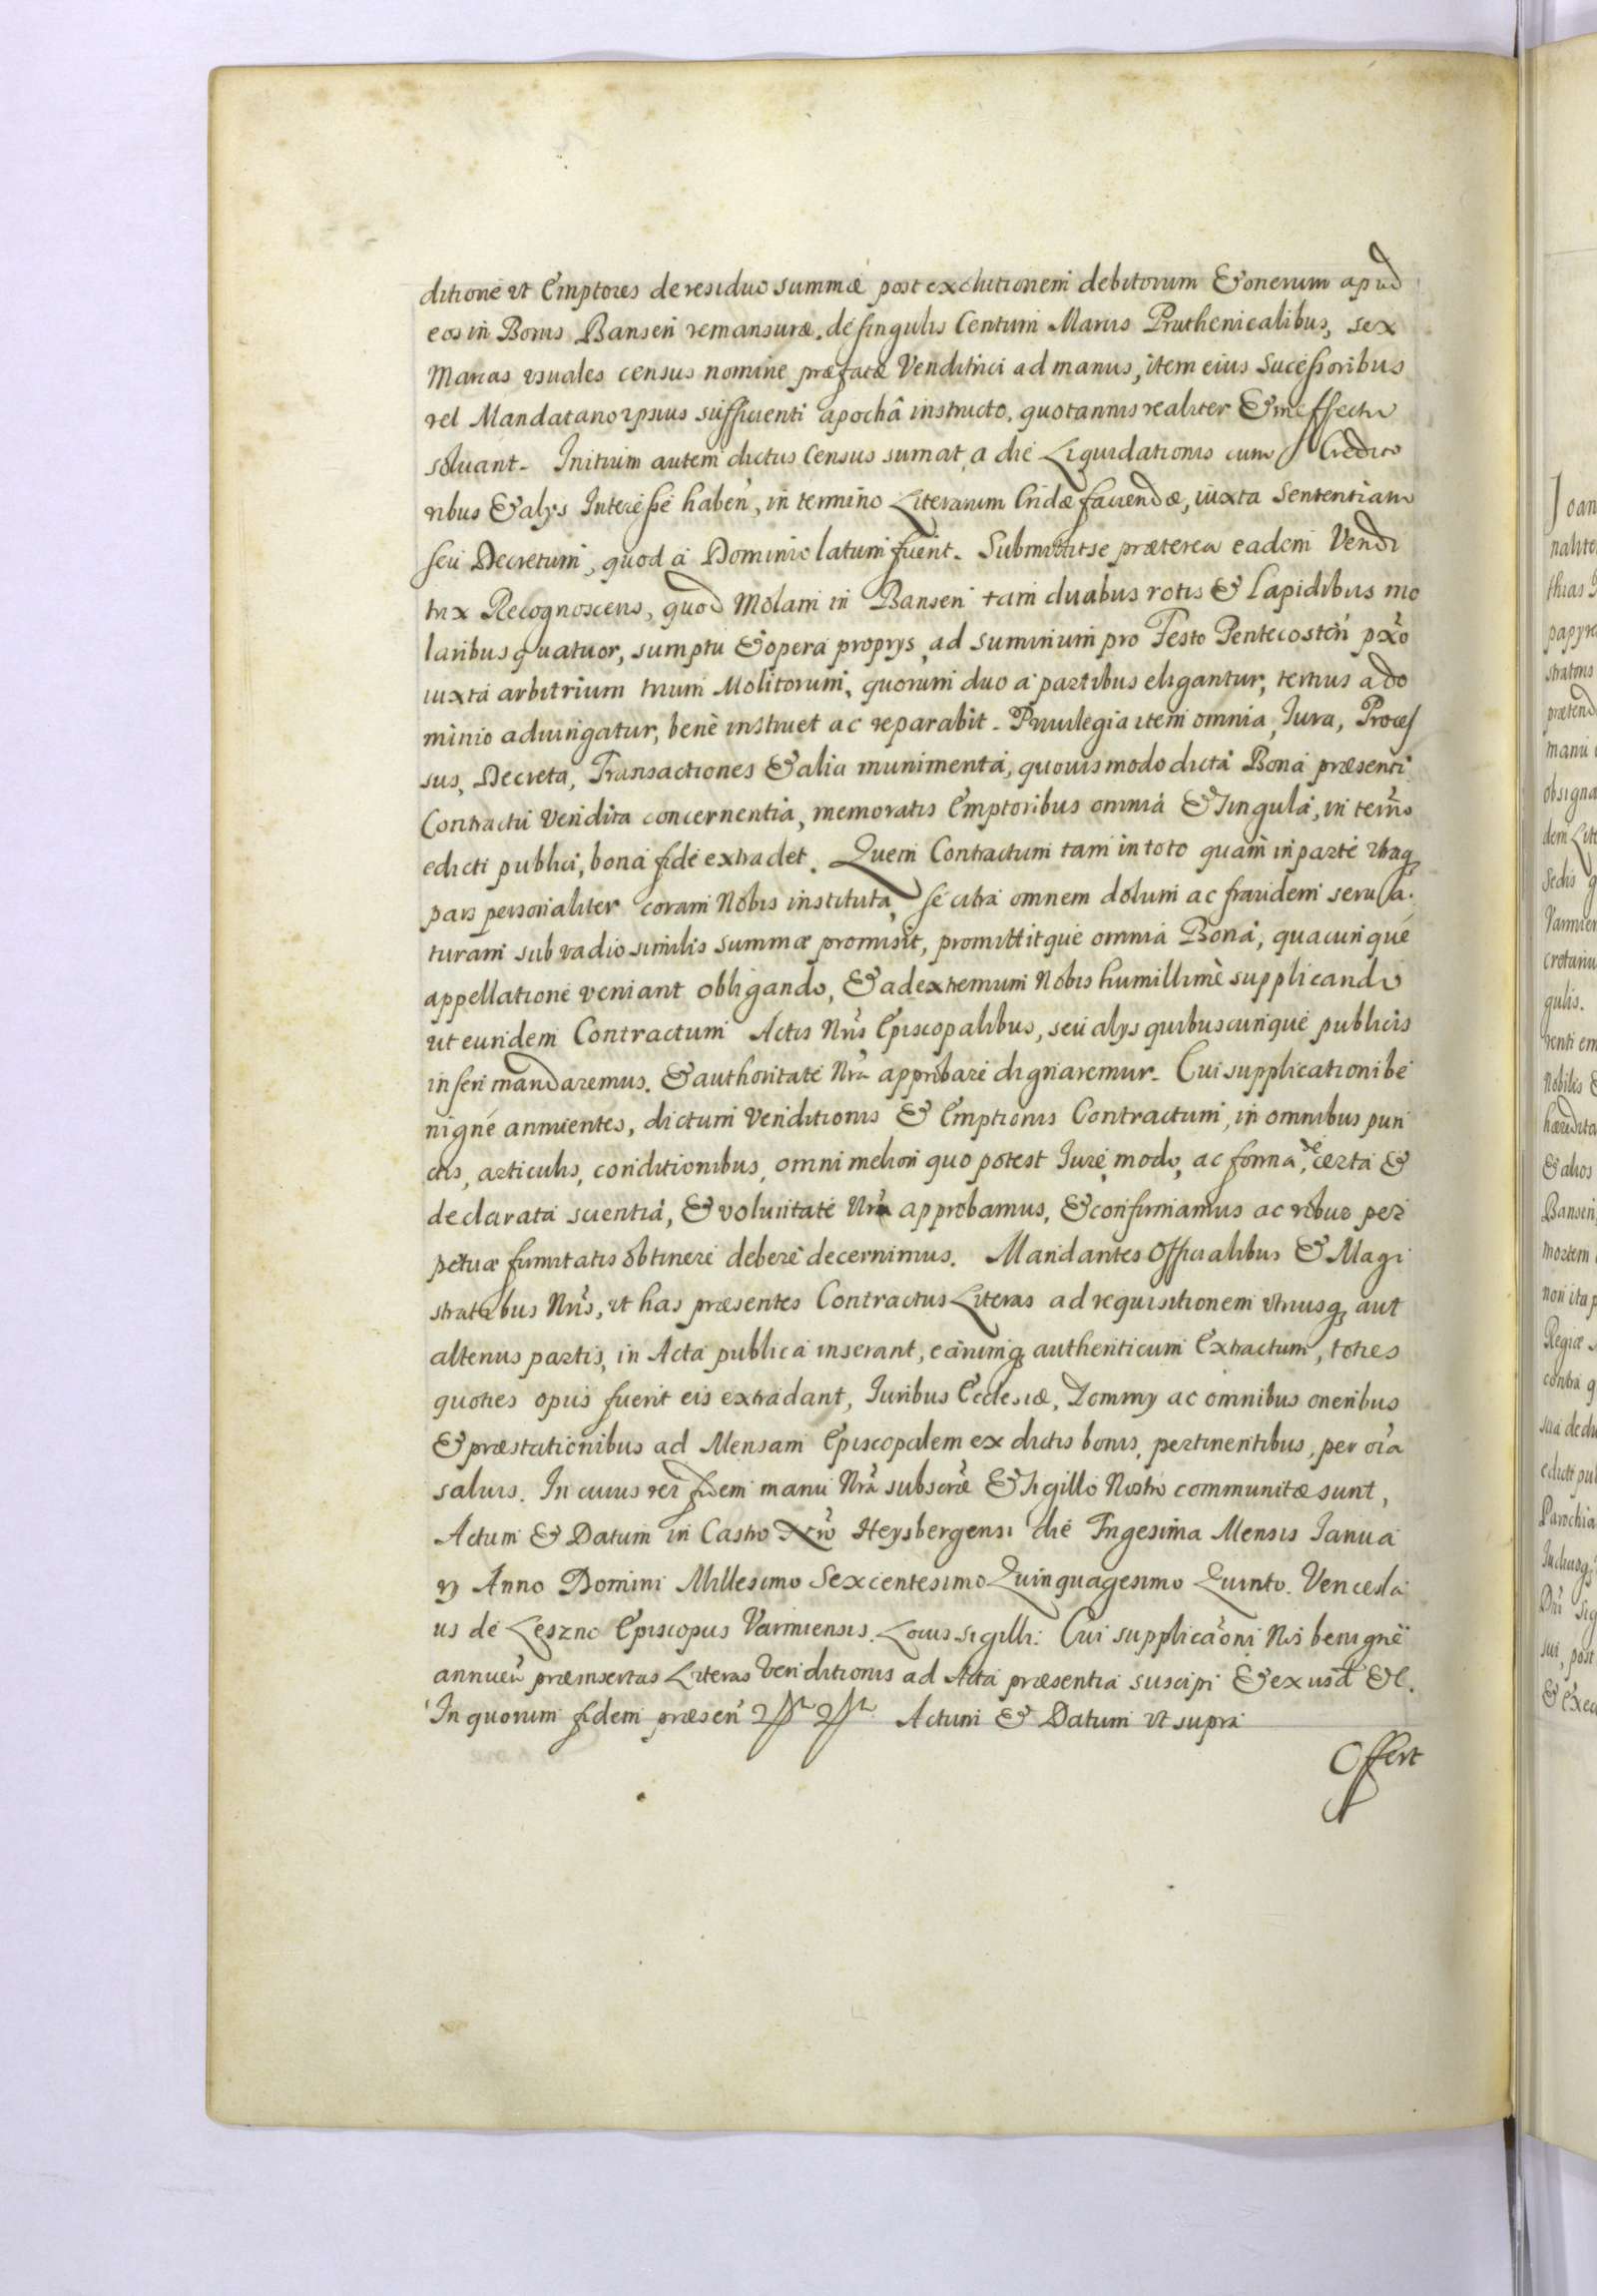 ditione vt Emptores de residuo summæ post exolutionem debitorum & onerum apud
eos in Bonis Bansen remansuræ, de singulis Centum Marcis Pruthenicalibus, sex
Marcas vsuales census nomine præfatæ Venditrici ad manus, item eius Sucessoribus
vel Mandatario ipsius sufficienti apochâ instructo, quotannis realiter & in effectu
soluant. Initium autem dictus Census sumat a die Liquidationis cum Credito
ribus & alys Interesse haben, in termino Literarum Cridæ faciendæ, iuxta Sententiam
seu Decretum, quod a Dominio latum fuerit. Submittit se præterea eadem Vendi
trix Recognoscens, quod Molam in Bansen tam duabus rotis & Lapidibus mo
laribus quatuor, sumptu & opera proprys, ad summum pro Festo Pentecosten pxo
iuxta arbitrium trium Molitorum, quorum duo a partibus eligantur, tertius a do
minio adiungatur, benè instruet ac reparabit. Priuilegia item omnia, Iura, Proces
sus, Decreta, Transactiones & alia munimenta, quouismodo dicta Bona præsenti
Contractu vendita concernentia, memoratis Emptoribus omnia & singula, in termo
edicti publici, bona fide extradet. Quem Contractum tam in toto quam in parte vtraq
pars personaliter coram Nobis instituta, se citra omnem dolum ac fraudem serua
turam sub vadio similis summæ promisit, promittitque omnia Bona, quacunque
appellatione veniant obligando, & ad extremum Nobis humillimè supplicando
ut eundem Contractum Actis Nris Episcopalibus, seu alys quibuscunque publicis
inseri mandaremus, & authoritate Nra approbare dignaremur. Cui supplicationi be
nigne annuentes, dictum Venditionis & Emptionis Contractum, in omnibus pun
ctis, articulis, conditionibus, omni meliori quo potest Iure, modo, ac forma, de certa &
declarata scientia, & voluntate Nra approbamus, & confirmamus ac robur per
petuæ firmitatis obtinere debere decernimus. Mandantes Officialibus & Magi
stratibus Nris, vt has præsentes Contractus Literas ad requisitionem vtriusq, aut
alterius partis, in Acta publica inserant, earumq authenticum Extractum, toties
quoties opus fuerit eis extradant, Iuribus Ecclesiæ, Dominy ac omnibus oneribus
& præstationibus ad Mensam Episcopalem ex dictis bonis, pertinentibus, per oia
saluis. In cuius rei fidem manu Nra subscræ & sigillo Nostro communitæ sunt,
Actum & Datum in Castro Nro Heysbergensi die Trigesima Mensis Ianua
ry Anno Domini Millesimo Sexcentesimo Quinquagesimo Quinto. Vencesla
us de Leszno Episcopus Varmiensis. Locus sigilli. Cui supplicaoni Nos benignè
annuen præinsertas Literas Venditionis ad Acta præsentia suscipi & exusd &c.
In quorum fidem præsen Actum & Datum vt supra
Offert